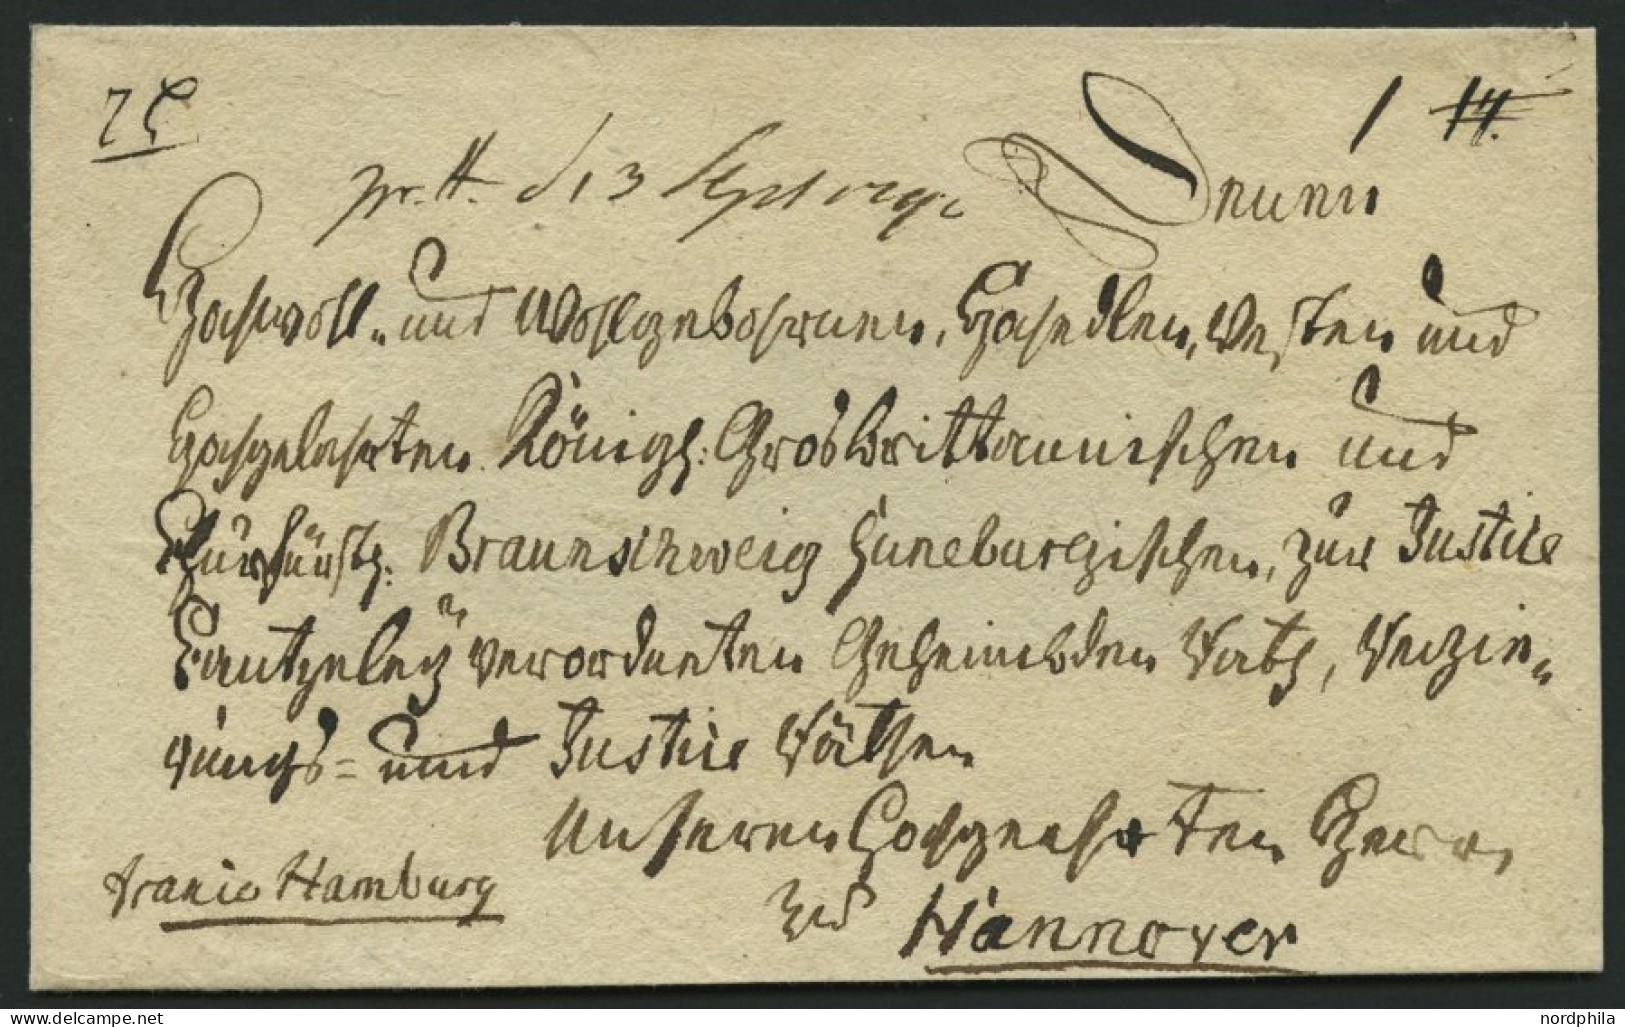 Denen
Hochwoll- und Wohlgebohrnen, Hochedlen, Vesten und
Hochgelahrten Königl: Grosbrittannischen und
Churfürstl: Braunschweig Lüneburgischen, zur Justice
Cantzeley verordneten Geheimbden Rath, Regie=
rungs= und Justice Räthen
Unseren Hochgeehrten Herrn
zu Hannover
franco Hamburg
www.delcampe.net
nordphila